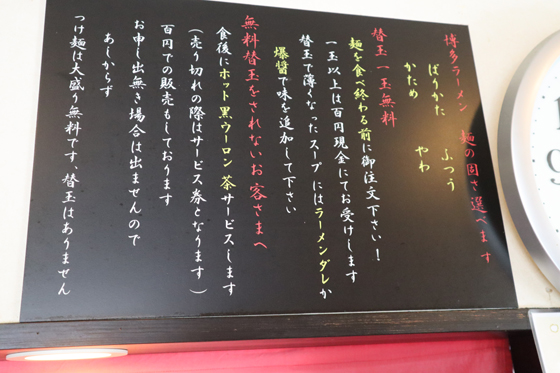 博多ラーメン 麺の固さ選べます
ばりかた ふつう
かため やわ
替玉一玉無料
麺を食べ終わる前に御注文下さい!
一玉以上は百円現金にてお受けします
替玉で薄くなったスープにはラーメンダレか
爆醤で味を追加して下さい
無料替玉をされないお客さまへ
食後にホット黒ウーロン茶サービスします
(売り切れの際はサービス券となります)
百円での販売もしております
お申し出無き場合は出ませんので
あしからず
つけ麺は大盛り無料です、替玉はありません